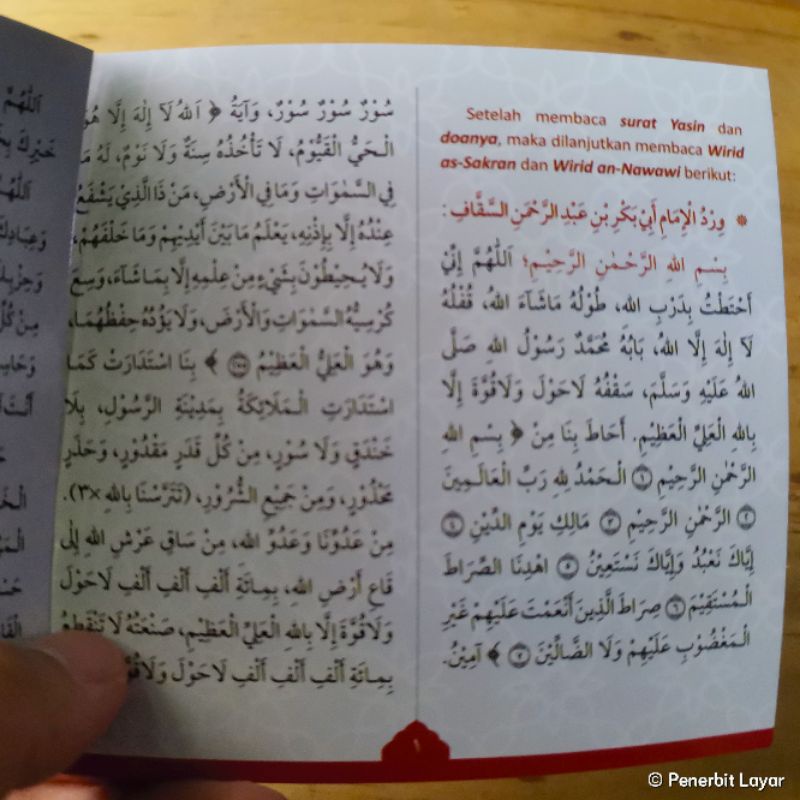 Setelah membaca surat Yasin dan
doanya, maka dilanjutkan membaca Wirid
as-Sakran dan Wirid an-Nawawi berikut:
* وِرْدُ الْإِمَامِ أَبِيْ بَكْرِ بْنِ عَبْدِ الرَّحْمٰنِ السَّقَّافِ:
بِسْمِ اللهِ الرَّحْمٰنِ الرَّحِيْمِ؛ اَللّٰهُمَّ إِنِّيْ
أَحْتَطْتُ بِدَرْبِ اللهِ، طُوْلُهُ مَاشَآءَ اللهُ، قُفْلُهُ
لَآ إِلٰهَ إِلَّا اللهُ، بَابُهُ مُحَمَّدٌ رَسُوْلُ اللهِ صَلَّى
اللهُ عَلَيْهِ وَسَلَّمَ، سَقْفُهُ لَاحَوْلَ وَلَاقُوَّةَ إِلَّا
بِاللهِ الْعَلِيِّ الْعَظِيْمِ. أَحَاطَ بِنَا مِنْ ﴿ بِسْمِ اللهِ
الرَّحْمٰنِ الرَّحِيْمِ ۝١ الْحَمْدُ لِلهِ رَبِّ الْعَالَمِيْنَ
۝٢ الرَّحْمٰنِ الرَّحِيْمِ ۝٣ مَالِكِ يَوْمِ الدِّيْنِ ۝٤
إِيَّاكَ نَعْبُدُ وَإِيَّاكَ نَسْتَعِيْنُ ۝٥ اهْدِنَا الصِّرَاطَ
الْمُسْتَقِيْمَ ۝٦ صِرَاطَ الَّذِيْنَ أَنْعَمْتَ عَلَيْهِمْ غَيْرِ
الْمَغْضُوْبِ عَلَيْهِمْ وَلَا الضَّالِّيْنَ ۝٧ ﴾ آمِيْنُ.
سُوْرٌ سُوْرٌ سُوْرٌ، وَآيَةُ ﴿ اَللهُ لَآ إِلٰهَ إِلَّا هُوَ
الْحَيُّ الْقَيُّوْمُ، لَا تَأْخُذُهُ سِنَةٌ وَلَا نَوْمٌ، لَهُ مَا
فِي السَّمٰوَاتِ وَمَا فِي الْأَرْضِ، مَنْ ذَا الَّذِيْ يَشْفَعُ
عِنْدَهُ إِلَّا بِإِذْنِهِ، يَعْلَمُ مَا بَيْنَ أَيْدِيْهِمْ وَمَا خَلْفَهُمْ،
وَلَا يُحِيْطُوْنَ بِشَيْءٍ مِنْ عِلْمِهِ إِلَّا بِمَا شَآءَ، وَسِعَ
كُرْسِيُّهُ السَّمٰوَاتِ وَالْأَرْضَ، وَلَا يَؤُدُهُ حِفْظُهُمَا،
وَهُوَ الْعَلِيُّ الْعَظِيْمُ ۝٢٥٥ ﴾ بِنَا اسْتَدَارَتْ كَمَا
اسْتَدَارَتِ الْمَلَائِكَةُ بِمَدِيْنَةِ الرَّسُوْلِ، بِلَا
خَنْدَقٍ وَلَا سُوْرٍ، مِنْ كُلِّ قَدَرٍ مَقْدُوْرٍ، وَحَذَرٍ
مَحْذُوْرٍ، وَمِنْ جَمِيْعِ الشُّرُوْرِ، (تَتَرَّسْنَا بِاللهِ ×٣).
مِنْ عَدُوِّنَا وَعَدُوِّ اللهِ، مِنْ سَاقِ عَرْشِ اللهِ إِلَى
قَاعِ أَرْضِ اللهِ، بِمِائَةِ أَلْفِ أَلْفِ أَلْفِ لَاحَوْلَ
وَلَاقُوَّةَ إِلَّا بِاللهِ الْعَلِيِّ الْعَظِيْمِ، صَنْعَتُهُ لَا تَنْقَطِعُ
بِمِائَةِ أَلْفِ أَلْفِ أَلْفِ لَا حَوْلَ وَلَاقُوَّةَ
١
اَللّٰهُمَّ
© Penerbit Layar